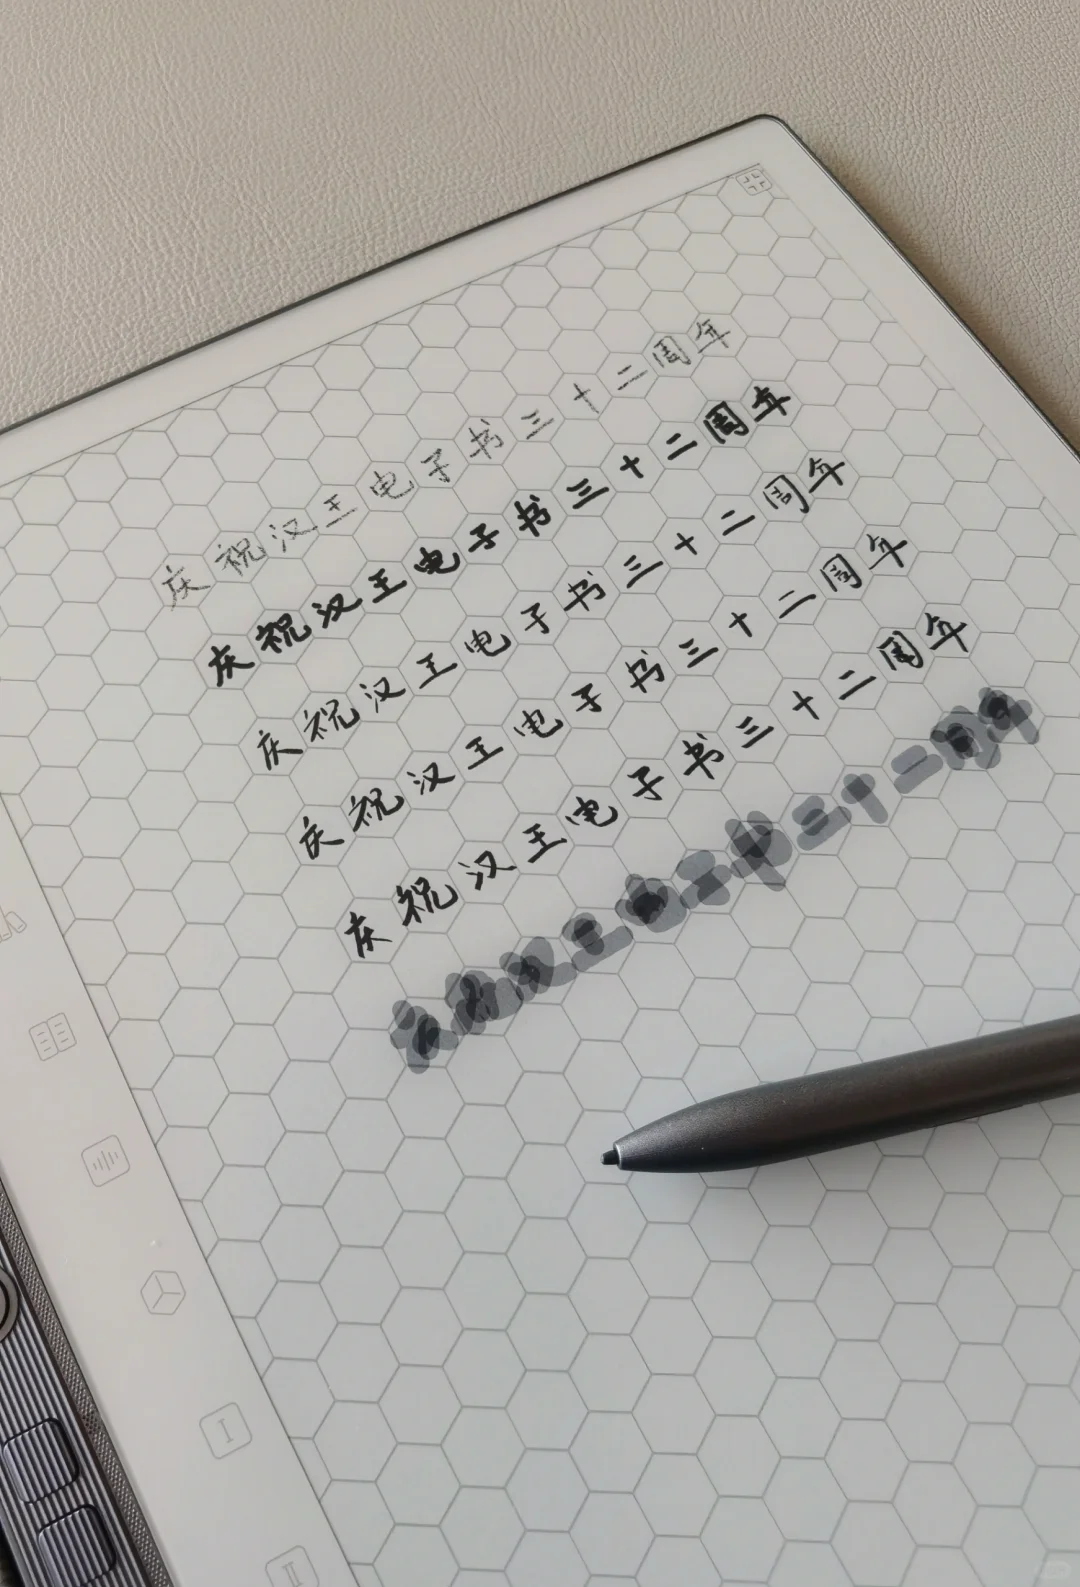 庆祝汉王电子书三十二周年
庆祝汉王电子书三十二周年
庆祝汉王电子书三十二周年
庆祝汉王电子书三十二周年
庆祝汉王电子书三十二周年
庆祝汉王电子书三十二周年
I
II